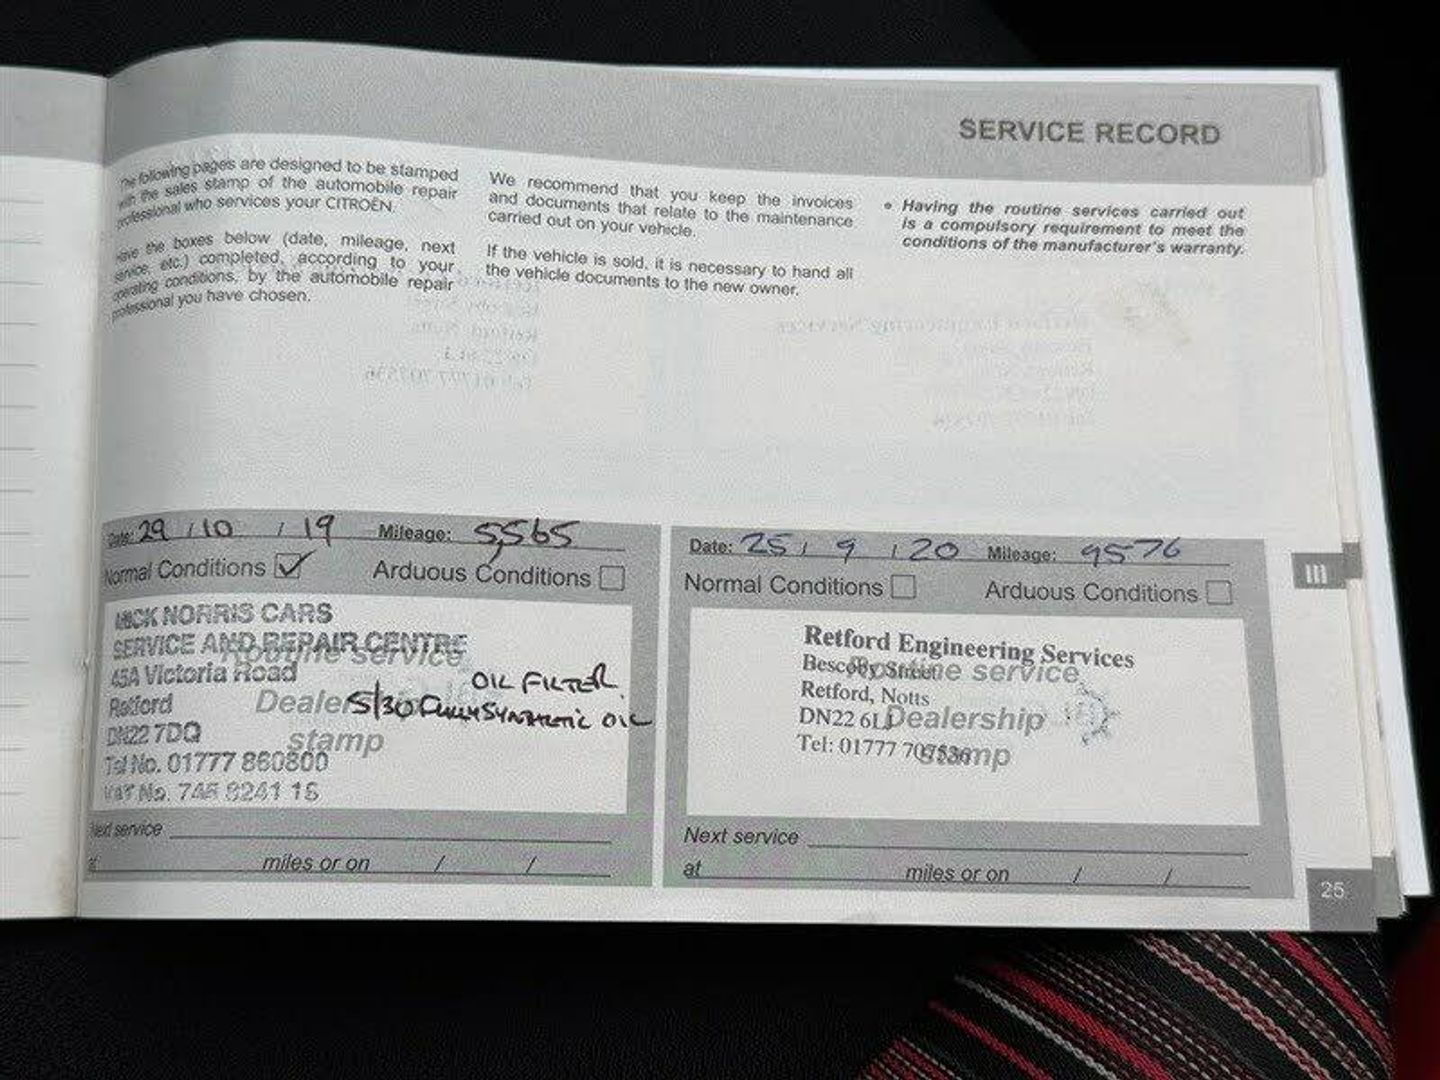 SERVICE RECORD
The following pages are designed to be stamped
with the sales stamp of the automobile repair
professional who services your CITROËN.
Have the boxes below (date, mileage, next
service, etc.) completed, according to your
operating conditions, by the automobile repair
professional you have chosen.
We recommend that you keep the invoices
and documents that relate to the maintenance
carried out on your vehicle.
If the vehicle is sold, it is necessary to hand all
the vehicle documents to the new owner.
• Having the routine services carried out
is a compulsory requirement to meet the
conditions of the manufacturer's warranty.
Date: 29 / 10 / 19 Mileage: 5,565
Normal Conditions ✓ Arduous Conditions
MICK NORRIS CARS
SERVICE AND REPAIR CENTRE
Routine service
45A Victoria Road
OIL FILTER
Retford
Dealership
5/30 FULLY SYNTHETIC OIL
DN22 7DQ
stamp
Tel No. 01777 860800
VAT No. 745 8241 16
Next service
at miles or on / /
Date: 25 / 9 / 20 Mileage: 9576
Normal Conditions Arduous Conditions
Retford Engineering Services
Bescoby Street
Routine service
Retford, Notts
DN22 6LJ
Dealership
Tel: 01777 707536
stamp
Next service
at miles or on / /
III
25